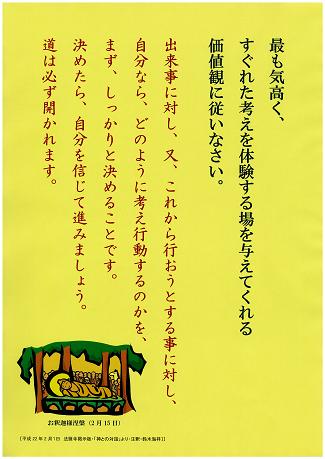 最も気高く、
すぐれた考えを体験する場を与えてくれる
価値観に従いなさい。
出来事に対し、又、これから行おうとする事に対し、
自分なら、どのように考え行動するのかを、
まず、しっかりと決めることです。
決めたら、自分を信じて進みましょう。
道は必ず開かれます。
お釈迦様涅槃(2月15日)
[平成22年2月1日 法華寺掲示板・「神との対話」より・注釈・鈴木海祥]